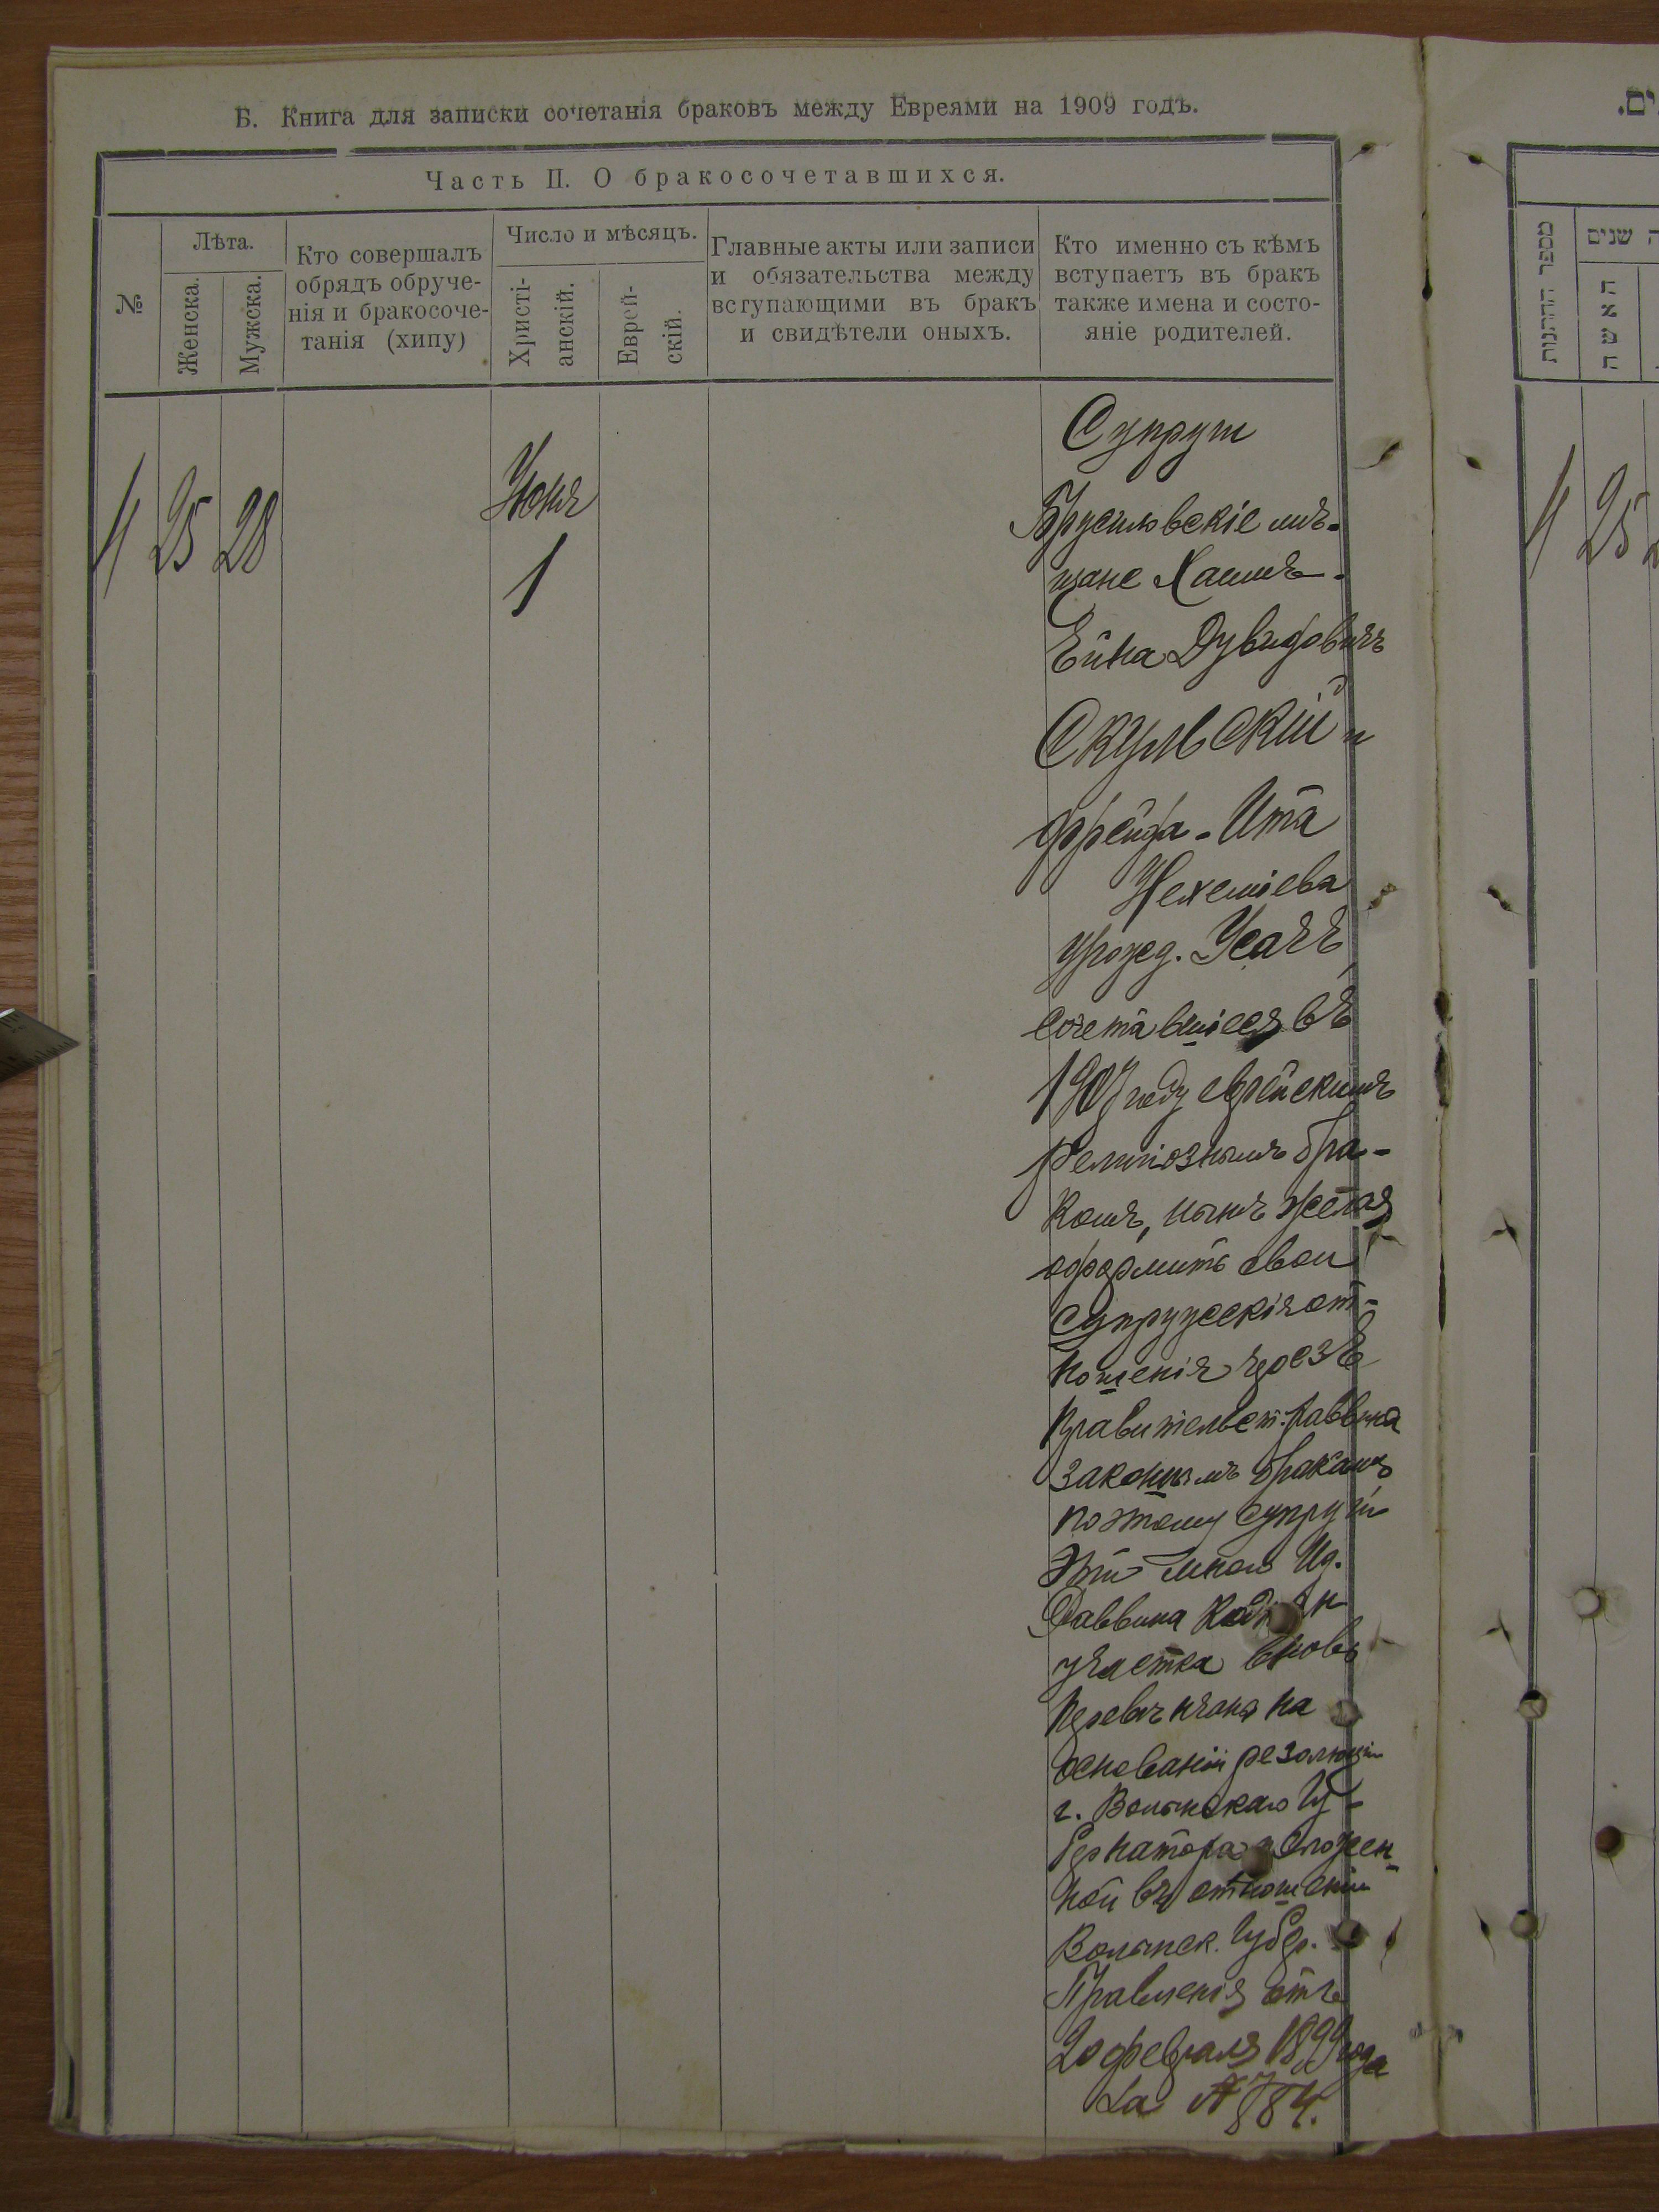 Б. Книга для записки сочетанія браковъ между Евреями на 1909 годъ.
Часть II. О бракосочетавшихся.
№
Лѣта.
Женска.
Мужска.
Кто совершалъ
обрядъ обруче-
нія и бракосоче-
танія (хипу)
Число и мѣсяцъ.
Христі-
анскій.
Еврей-
скій.
Главные акты или записи
и обязательства между
вступающими въ бракъ
и свидѣтели оныхъ.
Кто именно съ кѣмъ
вступаетъ въ бракъ
также имена и состо-
яніе родителей.
4 25 28
Юня
1
Супруги
Брусиловскіе мѣ-
щане Хаимъ-
Ейна Дувидовичъ
Скульскій и
Фрейда-Ита
Нехеміева
урожд. Усачъ,
сочетавшіеся въ
1907 году еврейскимъ
религіознымъ бра-
комъ, нынѣ желая
оформить свои
супружескія от-
ношенія чрезъ
Правительст. раввина
законнымъ бракомъ
поэтому супруги
эти мною Ид.
Раввина
участка вновь
перевѣнчаны на
основаніи резолюціи
г. Волынскаго Гу-
бернатора изложен-
ной въ отношеніи
Волынск. Губер.
Правленія отъ
20 февраля 1899 года
за № 784.
ים.
מספר החתנות
שנים
האשה
4 25